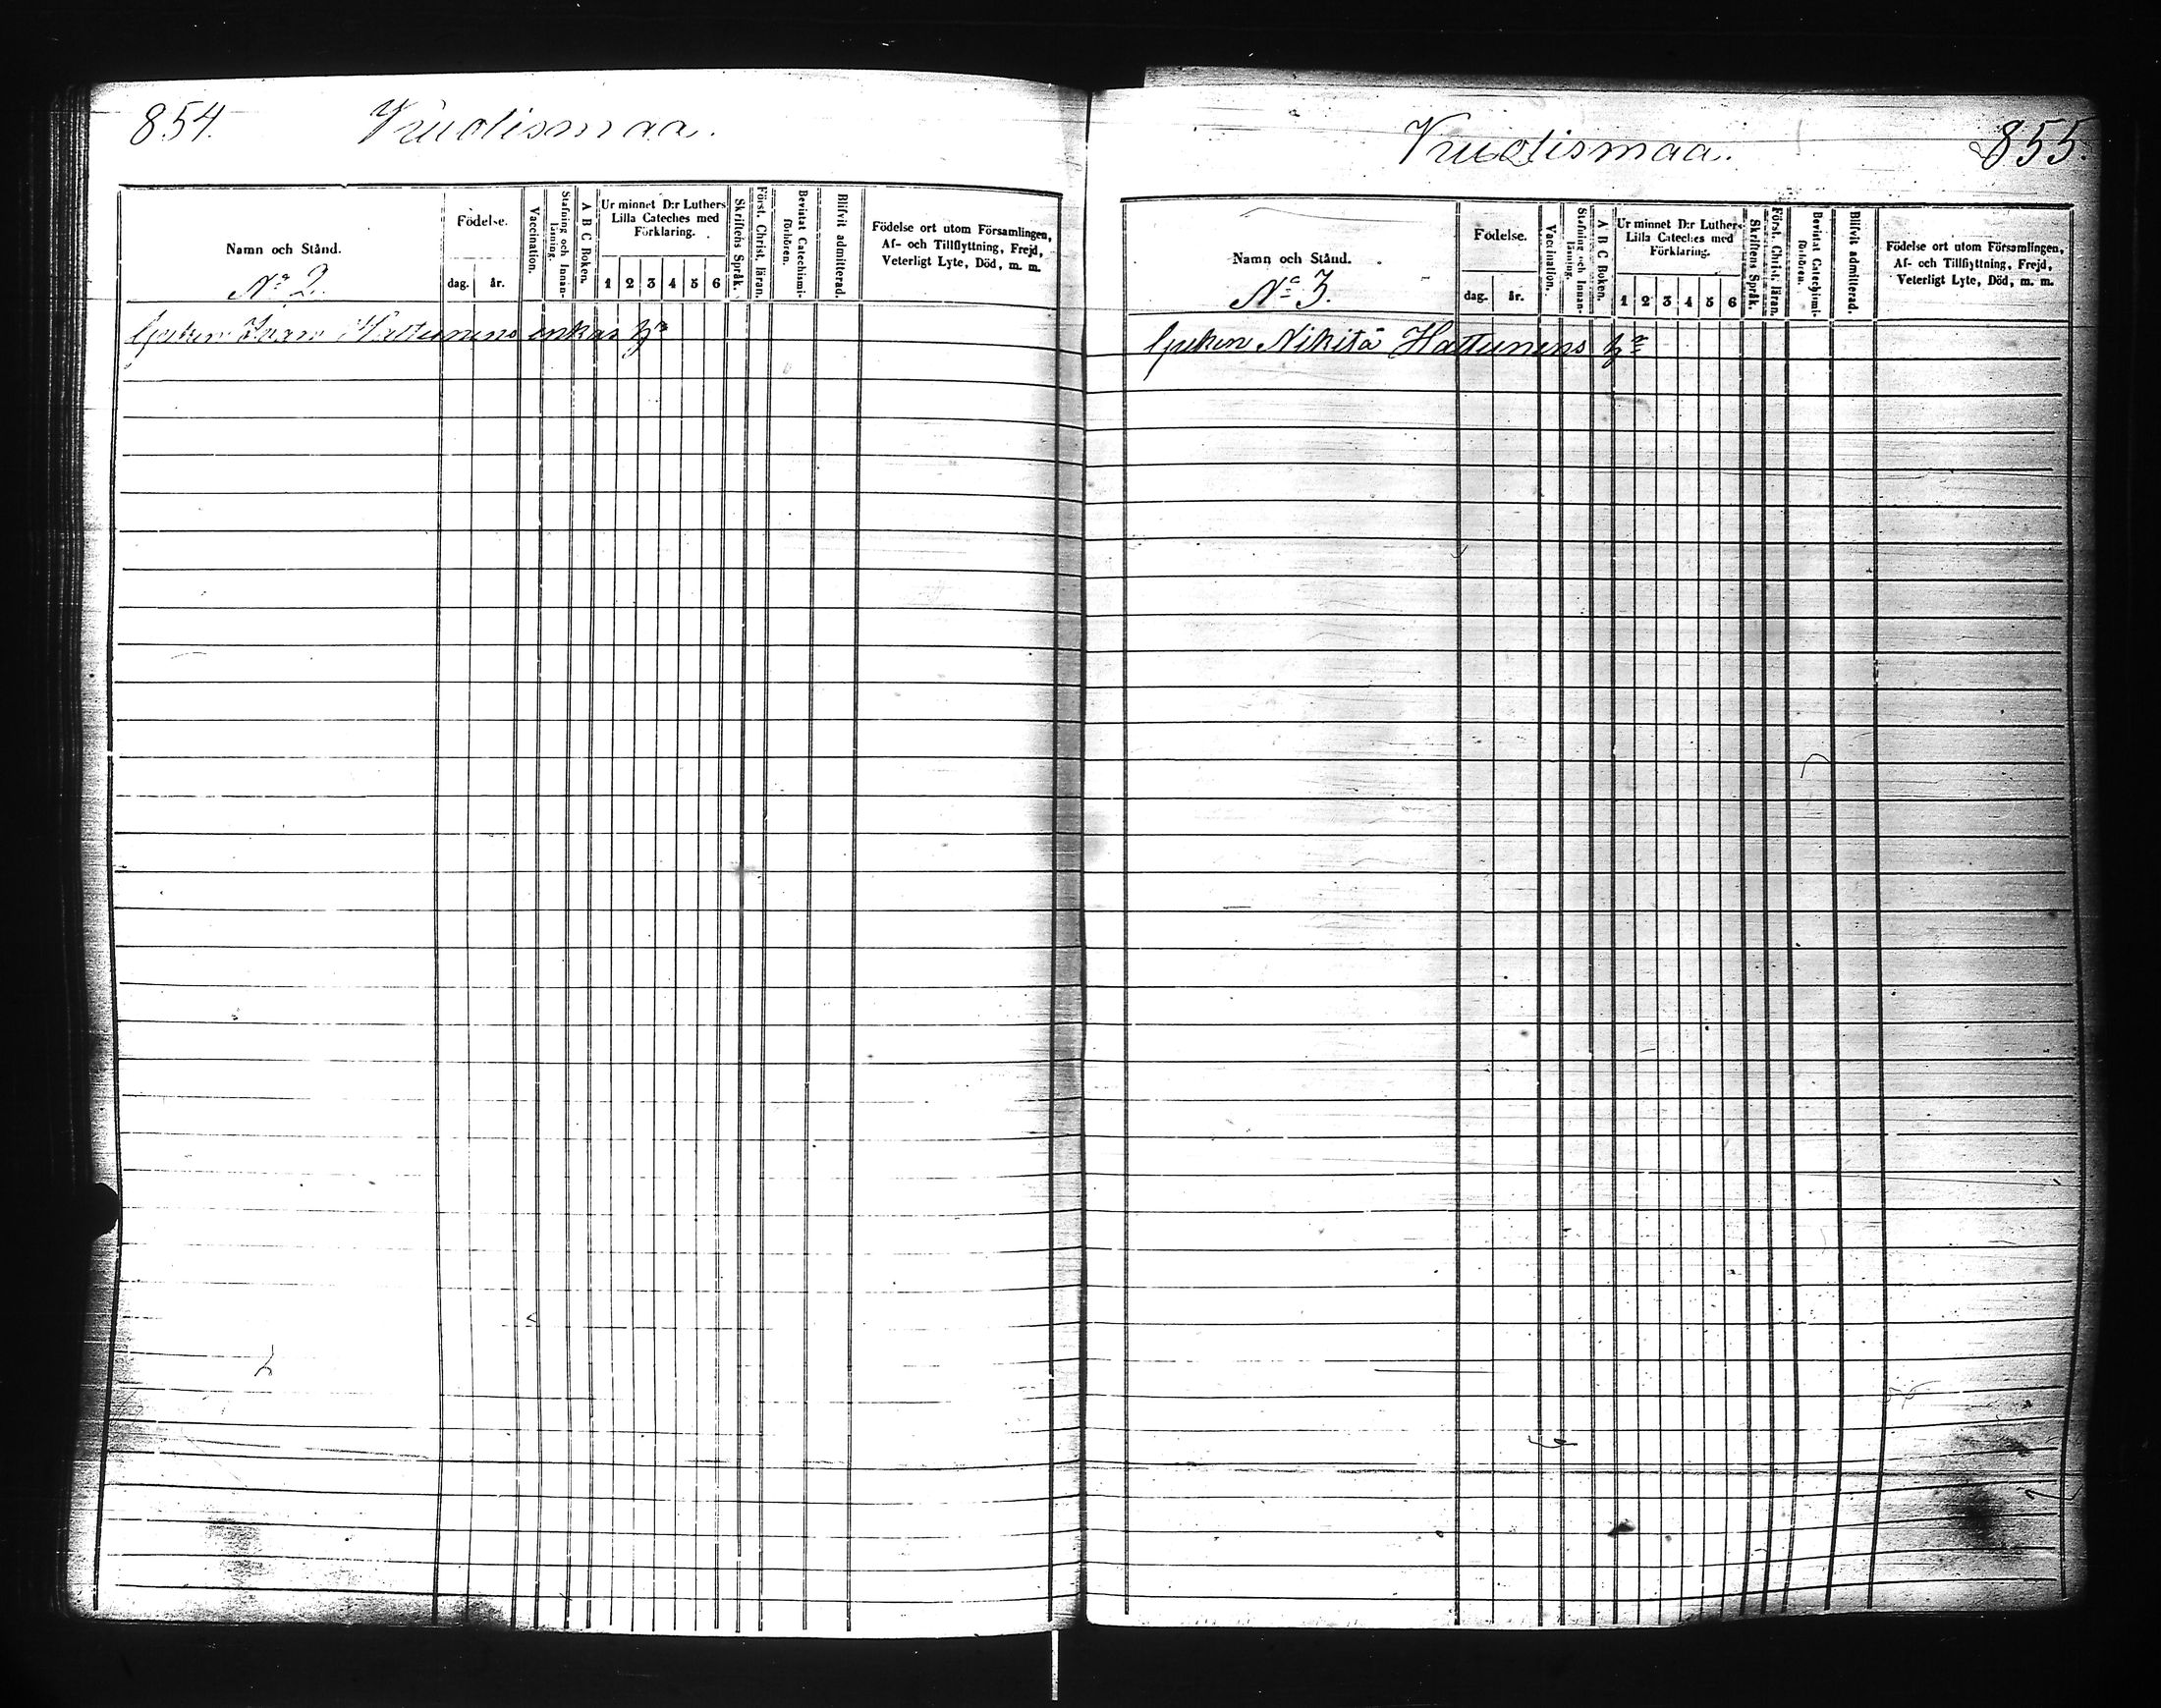 854.
Vuotismaa.
Namn och Stånd.
No 2.
Födelse.
dag. år.
Vaccination.
Stafning och Innan-
läsning.
A B C Boken.
Ur minnet D:r Luthers
Lilla Cateches med
Förklaring.
1 2 3 4 5 6
Skriftens Språk.
Först. Christ. läran.
Bevistat Catechismi-
förhören.
Blifvit admitterad.
Födelse ort utom Församlingen,
Af- och Tillflyttning, Frejd,
Veterligt Lyte, Död, m. m.
Iwan Hattunens enkas
Vuotismaa.
855.
Namn och Stånd.
No 3.
Födelse.
dag. år.
Vaccination.
Stafning och Innan-
läsning.
A B C Boken.
Ur minnet D:r Luthers
Lilla Cateches med
Förklaring.
1 2 3 4 5 6
Skriftens Språk.
Först. Christ. läran.
Bevistat Catechismi-
förhören.
Blifvit admitterad.
Födelse ort utom Församlingen,
Af- och Tillflyttning, Frejd,
Veterligt Lyte, Död, m. m.
Nikitä Hattunens